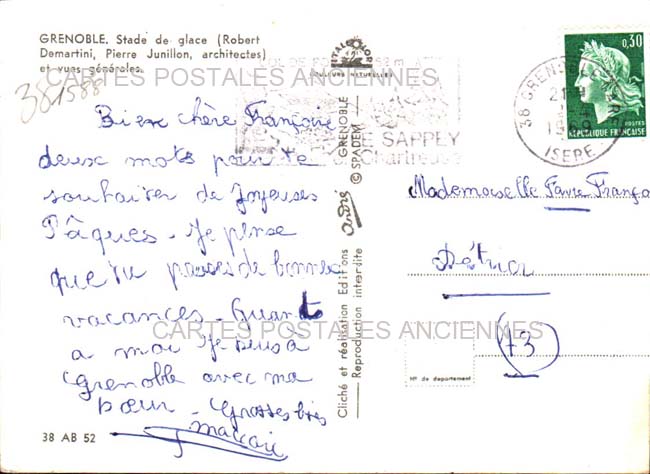 GRENOBLE. Stade de glace (Robert
Demartini, Pierre Junillon, architectes)
et vues générales.
381588
Bien chère Françoise
deux mots pour te
souhaiter de Joyeuses
Pâques. Je pense
que tu passes de bonnes
vacances. Quant
a moi Je suis à
Grenoble avec ma
sœur. Grosses bises
38 AB 52
CARTES POSTALES ANCIENNES
CARTES POSTALES ANCIENNES
COULEURS NATURELLES
GRENOBLE
© SPADEM
André
Cliché et réalisation Editions
Reproduction interdite
LE SAPPEY
Chartreuse
38 GRENOBLE
21H
ISERE
0,30
POSTES
REPUBLIQUE FRANÇAISE
Mademoiselle Favre França
Détrier
73
N° de département